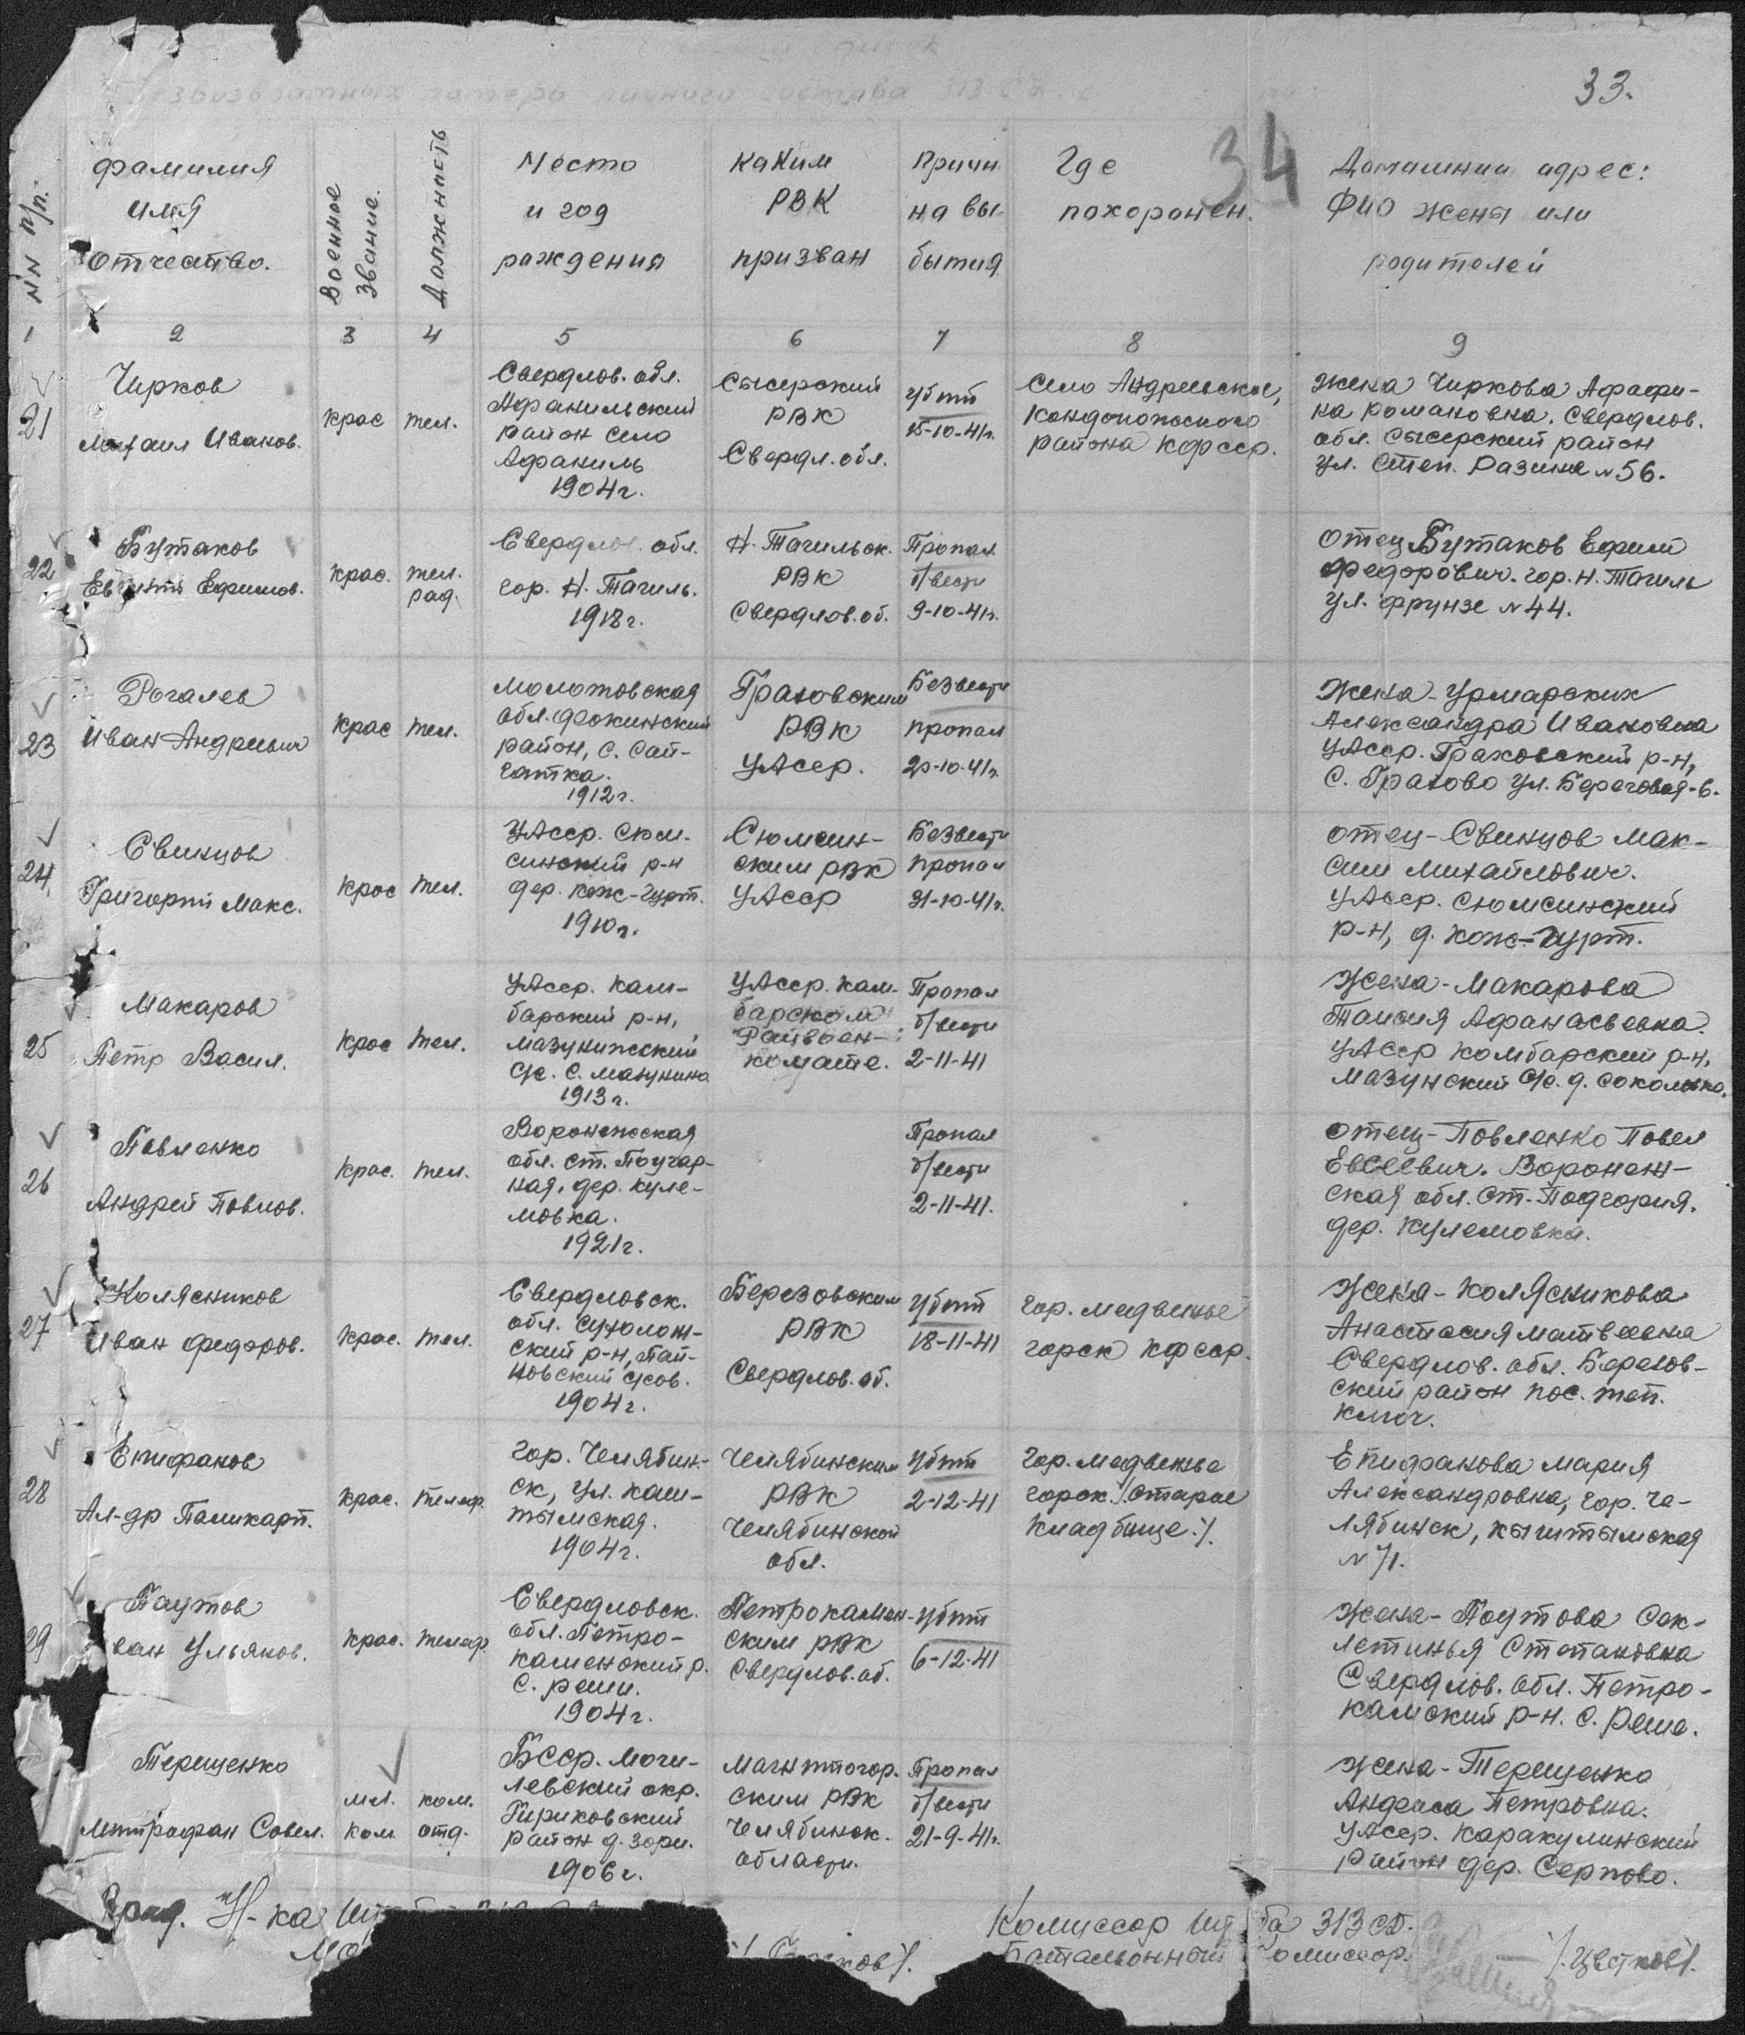 33.
34
NN п/п.
фамилия
имя
отчество.
Военное
звание.
Должность
Место
и год
рождения
каким
РВК
призван
Причи
на вы-
бытия
Где
похоронен.
Домашний адрес:
ФИО жены или
родителей
1 2 3 4 5 6 7 8 9
21
Чирков
Михаил Иванов.
крас
тел.
Свердлов. обл.
район село
1904г.
Сысерский
РВК
Свердл. обл.
убит
15-10-41г.
Село Андреевское,
Кондопожского
района КФССР.
Жена Чиркова Афафи-
на Романовна. Свердлов.
обл. Сысерский район
ул. Степ. Разина №56.
22
Бутаков
Евгений Ефимов.
крас.
тел.
рад.
Свердлов. обл.
гор. Н. Тагиль.
1918г.
Н. Тагильск.
РВК
Свердлов. об.
Пропал
б/вести
9-10-41г.
отец Бутаков Ефим
Федорович. гор. Н. Тагиль
ул. Фрунзе №44.
23
Рогалев
Иван Андреевич
крас
тел.
Молотовская
обл. Фокинский
район, с. Сай-
гатка.
1912г.
Граховским
РВК
УАССР.
Безвести
пропал
20-10-41г.
Жена - Урмарских
Александра Ивановна
УАССР. Граховский р-н,
с. Грахово ул. Береговая-6.
24
Свинцов
Григорий Макс.
крас
тел.
УАССР. Сюм-
синский р-н
дер. Кож-Гурт.
1910г.
Сюмсин-
ским РВК
УАССР
Безвести
пропал
31-10-41г.
отец - Свинцов Мак-
сим Михайлович.
УАССР. Сюмсинский
р-н, д. Кож-Гурт.
25
Макаров
Петр Васил.
крас
тел.
УАССР. Кам-
барский р-н,
Мазунинский
с/с. с. Мазунино
1913г.
УАССР. Кам-
барском
Райвоен-
комате.
Пропал
б/вести
2-11-41
Жена - Макарова
Таисия Афанасьевна.
УАССР Камбарский р-н,
Мазунский с/с. д. Соколовка.
26
Павленко
Андрей Павлов.
крас.
тел.
Воронежская
обл. ст. Поугар-
ная, дер. Куле-
мовка.
1921г.
Пропал
б/вести
2-11-41.
отец - Павленко Павел
Евсеевич. Воронеж-
ская обл. ст. Подгорня.
дер. Кулемовка.
27
Колясников
Иван Федоров.
крас.
тел.
Свердловск.
обл. Сухолож-
ский р-н,
1904г.
Березовским
РВК
Свердлов. об.
убит
18-11-41
гор. Медвежье
горск КФССР.
Жена - Колясникова
Анастасия Матвеевна
Свердлов. обл. Березов-
ский район пос.
ключ.
28
Епифанов
Ал-др Поликарп.
крас.
телеф.
гор. Челябин-
ск, ул. Каш-
тымская.
1904г.
Челябинским
РВК
Челябинской
обл.
убит
2-12-41
гор. Медвежье
горск /старое
кладбище./.
Епифанова Мария
Александровна, гор. Че-
лябинск, Кыштымская
№71.
29
Паутов
ван Ульянов.
крас.
телеф.
Свердловск.
обл. Петро-
каменский р.
с. Реши.
1904г.
Петрокамен-
ским РВК
Свердлов. об.
убит
6-12-41
Жена - Паутова Сек-
летинья Степановна
Свердлов. обл. Петро-
камский р-н. с. Реше.
Терещенко
Митрофан Савел.
мл.
ком
ком.
отд.
БССР. Моги-
левский окр.
район д. Зори.
1906г.
Магнитогор.
ским РВК
Челябинск.
области.
Пропал
б/вести
21-9-41г.
Жена - Терещенко
Петровна.
УАССР. Каракулинский
район дер. Серпово.
Врид. Н-ка
Комиссар Шт ба 313 СД.
Батальонный комиссар
/. Цветков/.